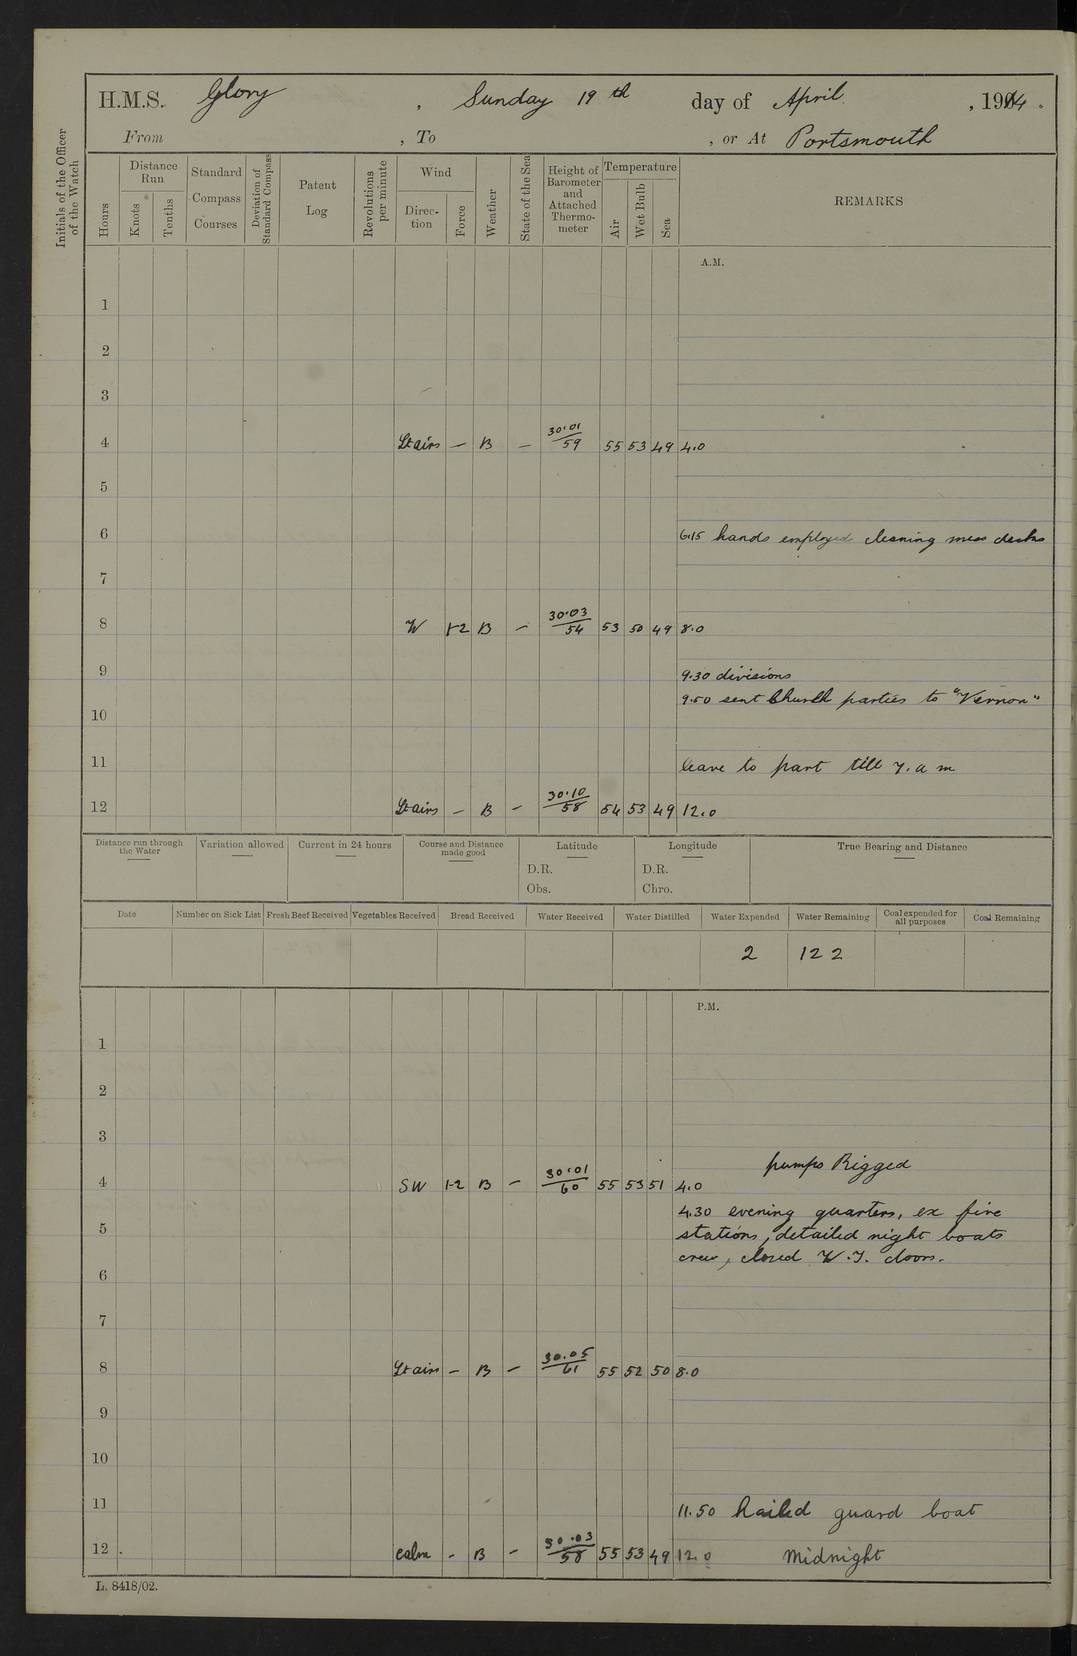 H.M.S. Glory , Sunday 19th day of April , 1914.
From , To , or At Portsmouth
Initials of the Officer of the Watch
Hours
Distance Run
Knots
Tenths
Standard Compass Courses
Deviation of Standard Compass
Patent Log
Revolutions per minute
Wind
Direction
Force
Weather
State of the Sea
Height of Barometer and Attached Thermometer
Temperature
Air
Wet Bulb
Sea
REMARKS
A.M.
1
2
3
4 Lt airs — B — 30.01/59 55 53 49 4.0
5
6 6.15 hands employed cleaning mess decks
7
8 W 1-2 B — 30.03/54 53 50 49 8.0
9 9.30 divisions
9.50 sent Church parties to "Vernon"
10
11 leave to part till 7. a m
12 Lt airs — B — 30.10/58 54 53 49 12.0
Distance run through the Water
Variation allowed
Current in 24 hours
Course and Distance made good
Latitude
D.R.
Obs.
Longitude
D.R.
Chro.
True Bearing and Distance
Date
Number on Sick List
Fresh Beef Received
Vegetables Received
Bread Received
Water Received
Water Distilled
Water Expended
Water Remaining
Coal expended for all purposes
Coal Remaining
2 122
P.M.
1
2
3
pumps Rigged
4 SW 1-2 B — 30.01/60 55 53 51 4.0
4.30 evening quarters, ex fire
5 stations, detailed night boats
crew, closed W.T. doors.
6
7
8 Lt airs — B — 30.05/61 55 52 50 8.0
9
10
11 11.50 hailed guard boat
12 calm - B — 30.03/58 55 53 49 12.0 Midnight
L. 8418/02.